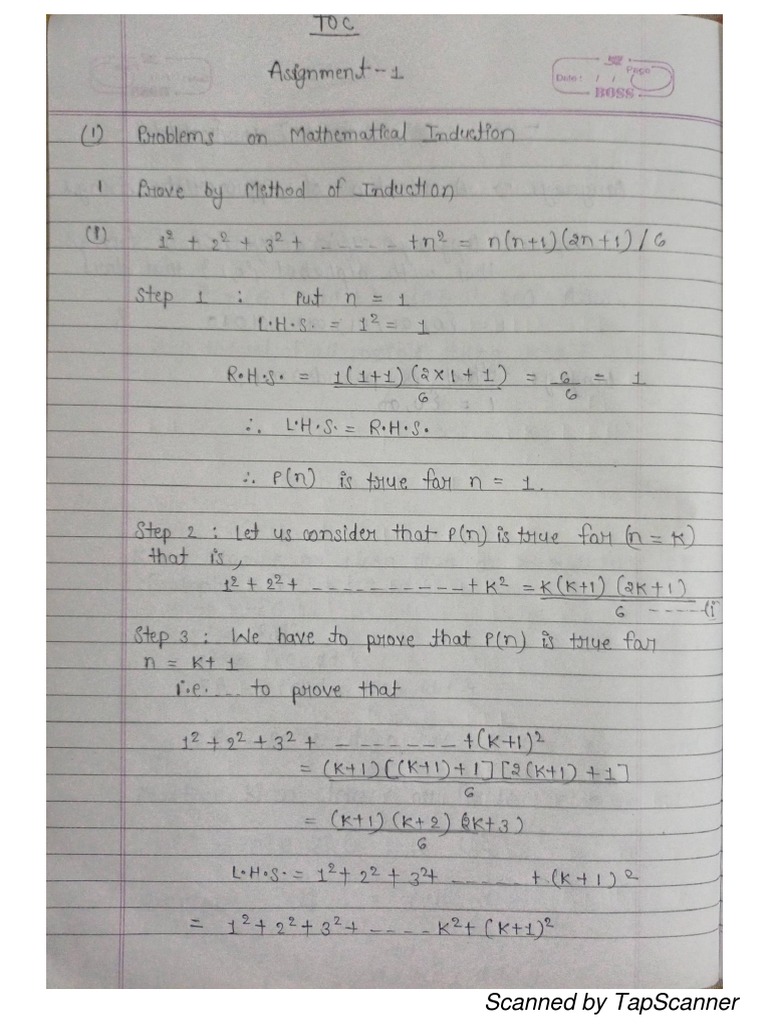 TOC
Assignment-1
Date: / / Page
BOSS
(1) Problems on Mathematical Induction
1 Prove by Method of Induction
(i) 1² + 2² + 3² + ------ +n² = n(n+1)(2n+1)/6
Step 1 : Put n = 1
L.H.S. = 1² = 1
R.H.S. = 1(1+1)(2×1+1)/6 = 6/6 = 1
∴ L.H.S. = R.H.S.
∴ P(n) is true for n = 1.
Step 2 : Let us consider that P(n) is true for (n = K)
that is,
1² + 2² + ---------- + K² = K(K+1)(2K+1)/6 -----(i
Step 3 : We have to prove that P(n) is true for
n = K+1
i.e.--- to prove that
1² + 2² + 3² + ------- +(K+1)²
= (K+1)[(K+1)+1][2(K+1)+1]/6
= (K+1)(K+2)(2K+3)/6
L.H.S. = 1² + 2² + 3² + ------ + (K+1)²
= 1² + 2² + 3² + ---- K² + (K+1)²
Scanned by TapScanner